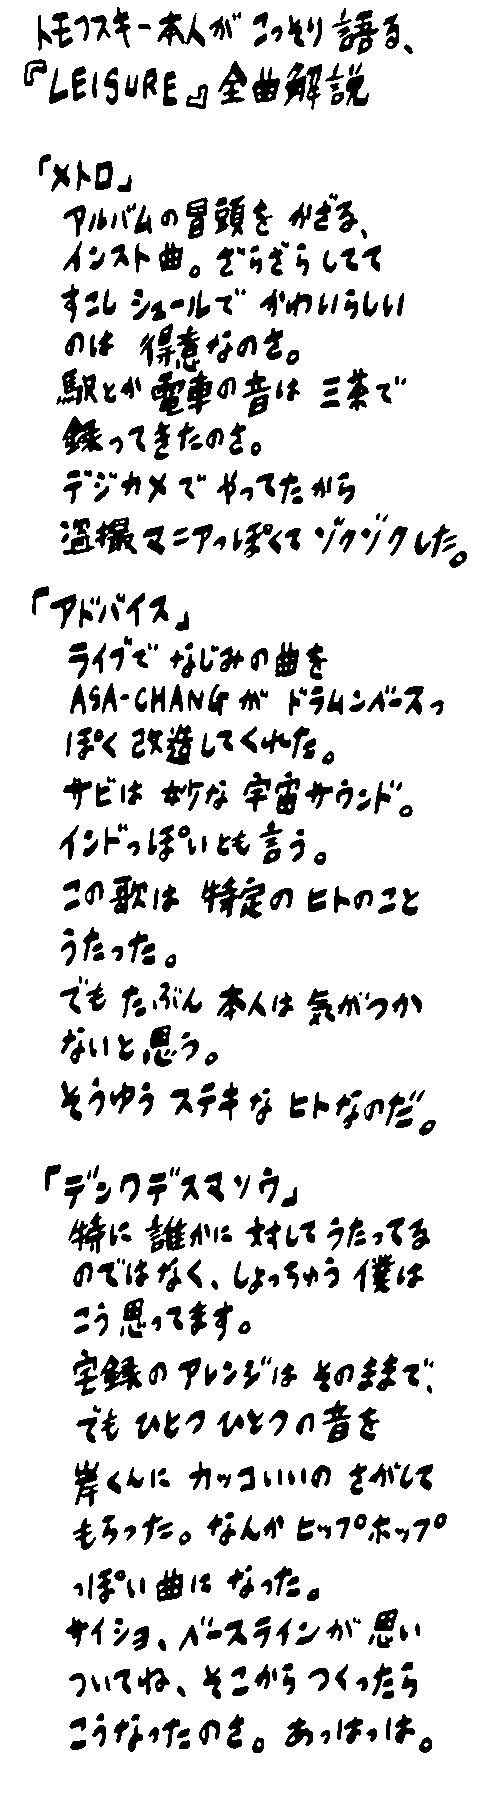 トモフスキー本人が こっそり 語る、
『LEISURE』全曲解説
「メトロ」
アルバムの冒頭を かざる、
インスト曲。ざらざらしてて
すこし シュールで かわいらしい
のは 得意なのさ。
駅とか 電車の音は 三茶で
録ってきたのさ。
デジカメで やってたから
盗撮マニアっぽくて ゾクゾクした。
「アドバイス」
ライブで なじみの曲を
ASA-CHANGが ドラムンベースっ
ぽく 改造してくれた。
サビは 妙な 宇宙サウンド。
インドっぽいとも言う。
この歌は 特定の ヒトのこと
うたった。
でも たぶん 本人は 気がつか
ないと思う。
そうゆう ステキな ヒトなのだ。
「デンワデスマソウ」
特に 誰かに 対して うたってる
のではなく、しょっちゅう 僕は
こう思ってます。
宅録の アレンジは そのままで、
でも ひとつ ひとつの 音を
岸くんに カッコいいの さがして
もらった。なんか ヒップホップ
っぽい 曲に なった。
サイショ、ベースラインが 思い
ついてね、そこから つくったら
こうなったのさ。あっはっは。